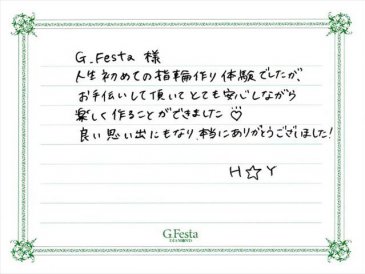 G.Festa 様
人生初めての指輪作り体験でしたが、
お手伝いして頂いてとても安心しながら
楽しく作ることができました♡
良い思い出にもなり、本当にありがとうございました!
H☆Y
G.Festa
DIAMOND